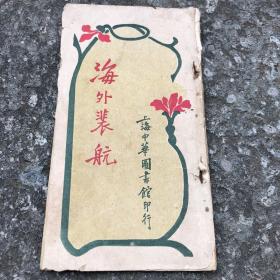 海外裴航
上海中華圖書館印行